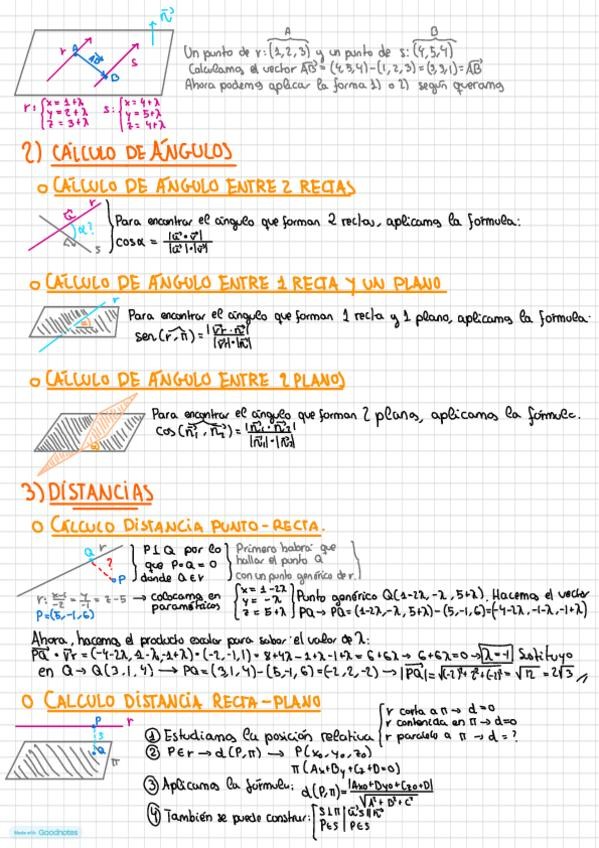 n⃗
A B
Un punto de r: (1,2,3) y un punto de s: (4,5,4)
Calculamos el vector AB⃗ = (4,5,4)-(1,2,3)=(3,3,1)=AB⃗
Ahora podemos aplicar la forma 1) o 2) según queramos
r A AB⃗ B s
r: { x = 1+λ
y = 2+λ
z = 3+λ
s: { x = 4+λ
y = 5+λ
z = 4+λ
2) CÁLCULO DE ÁNGULOS
o CÁLCULO DE ÁNGULO ENTRE 2 RECTAS
r u⃗ α? s
Para encontrar el ángulo que forman 2 rectas, aplicamos la fórmula:
cosα = |u⃗·v⃗| / |u⃗|·|v⃗|
o CÁLCULO DE ÁNGULO ENTRE 1 RECTA Y UN PLANO
r
Para encontrar el ángulo que forman 1 recta y 1 plano, aplicamos la fórmula.
sen(r,π) = |v⃗r·n⃗| / |v⃗r|·|n⃗|
o CÁLCULO DE ÁNGULO ENTRE 2 PLANOS
Para encontrar el ángulo que forman 2 planos, aplicamos la fórmula.
cos(n⃗₁,n⃗₂) = |n⃗₁·n⃗₂| / |n⃗₁|·|n⃗₂|
3) DISTANCIAS
o CÁLCULO DISTANCIA PUNTO-RECTA.
r Q ? P
P⊥Q por lo
que P·Q=0
donde Q∈r
Primero habrá que
hallar el punto Q
con un punto genérico de r.
P=(5,-1,6)
→ colocamos en
paramétricas
{ x = 1-2λ
y = -λ
z = 5+λ
Punto genérico Q(1-2λ,-λ,5+λ). Hacemos el vector
PQ → PQ=(1-2λ,-λ,5+λ)-(5,-1,6)=(-4-2λ,-1-λ,-1+λ)
Ahora, hacemos el producto escalar para saber el valor de λ:
PQ⃗·v⃗r=(-4-2λ,1-λ,-1+λ)·(-2,-1,1)=8+4λ-1+λ-1+λ=6+6λ → 6+6λ=0 → λ=-1 Sustituyo
en Q → Q(3,1,4) → PQ=(3,1,4)-(5,-1,6)=(-2,2,-2) → |PQ⃗|=√(-2)²+2²+(-2)²=√12=2√3
o CÁLCULO DISTANCIA RECTA-PLANO
P r Q π
① Estudiamos la posición relativa
{ r corta a π → d=0
r contenida en π → d=0
r paralelo a π → d=?
② P∈r → d(P,π) → P(x₀,y₀,z₀)
π(Ax+By+Cz+D=0)
③ Aplicamos la fórmula: d(P,π)= |Ax₀+By₀+Cz₀+D| / √A²+B²+C²
④ También se puede construir: S⊥π
P∈S
P∈S
Made with Goodnotes